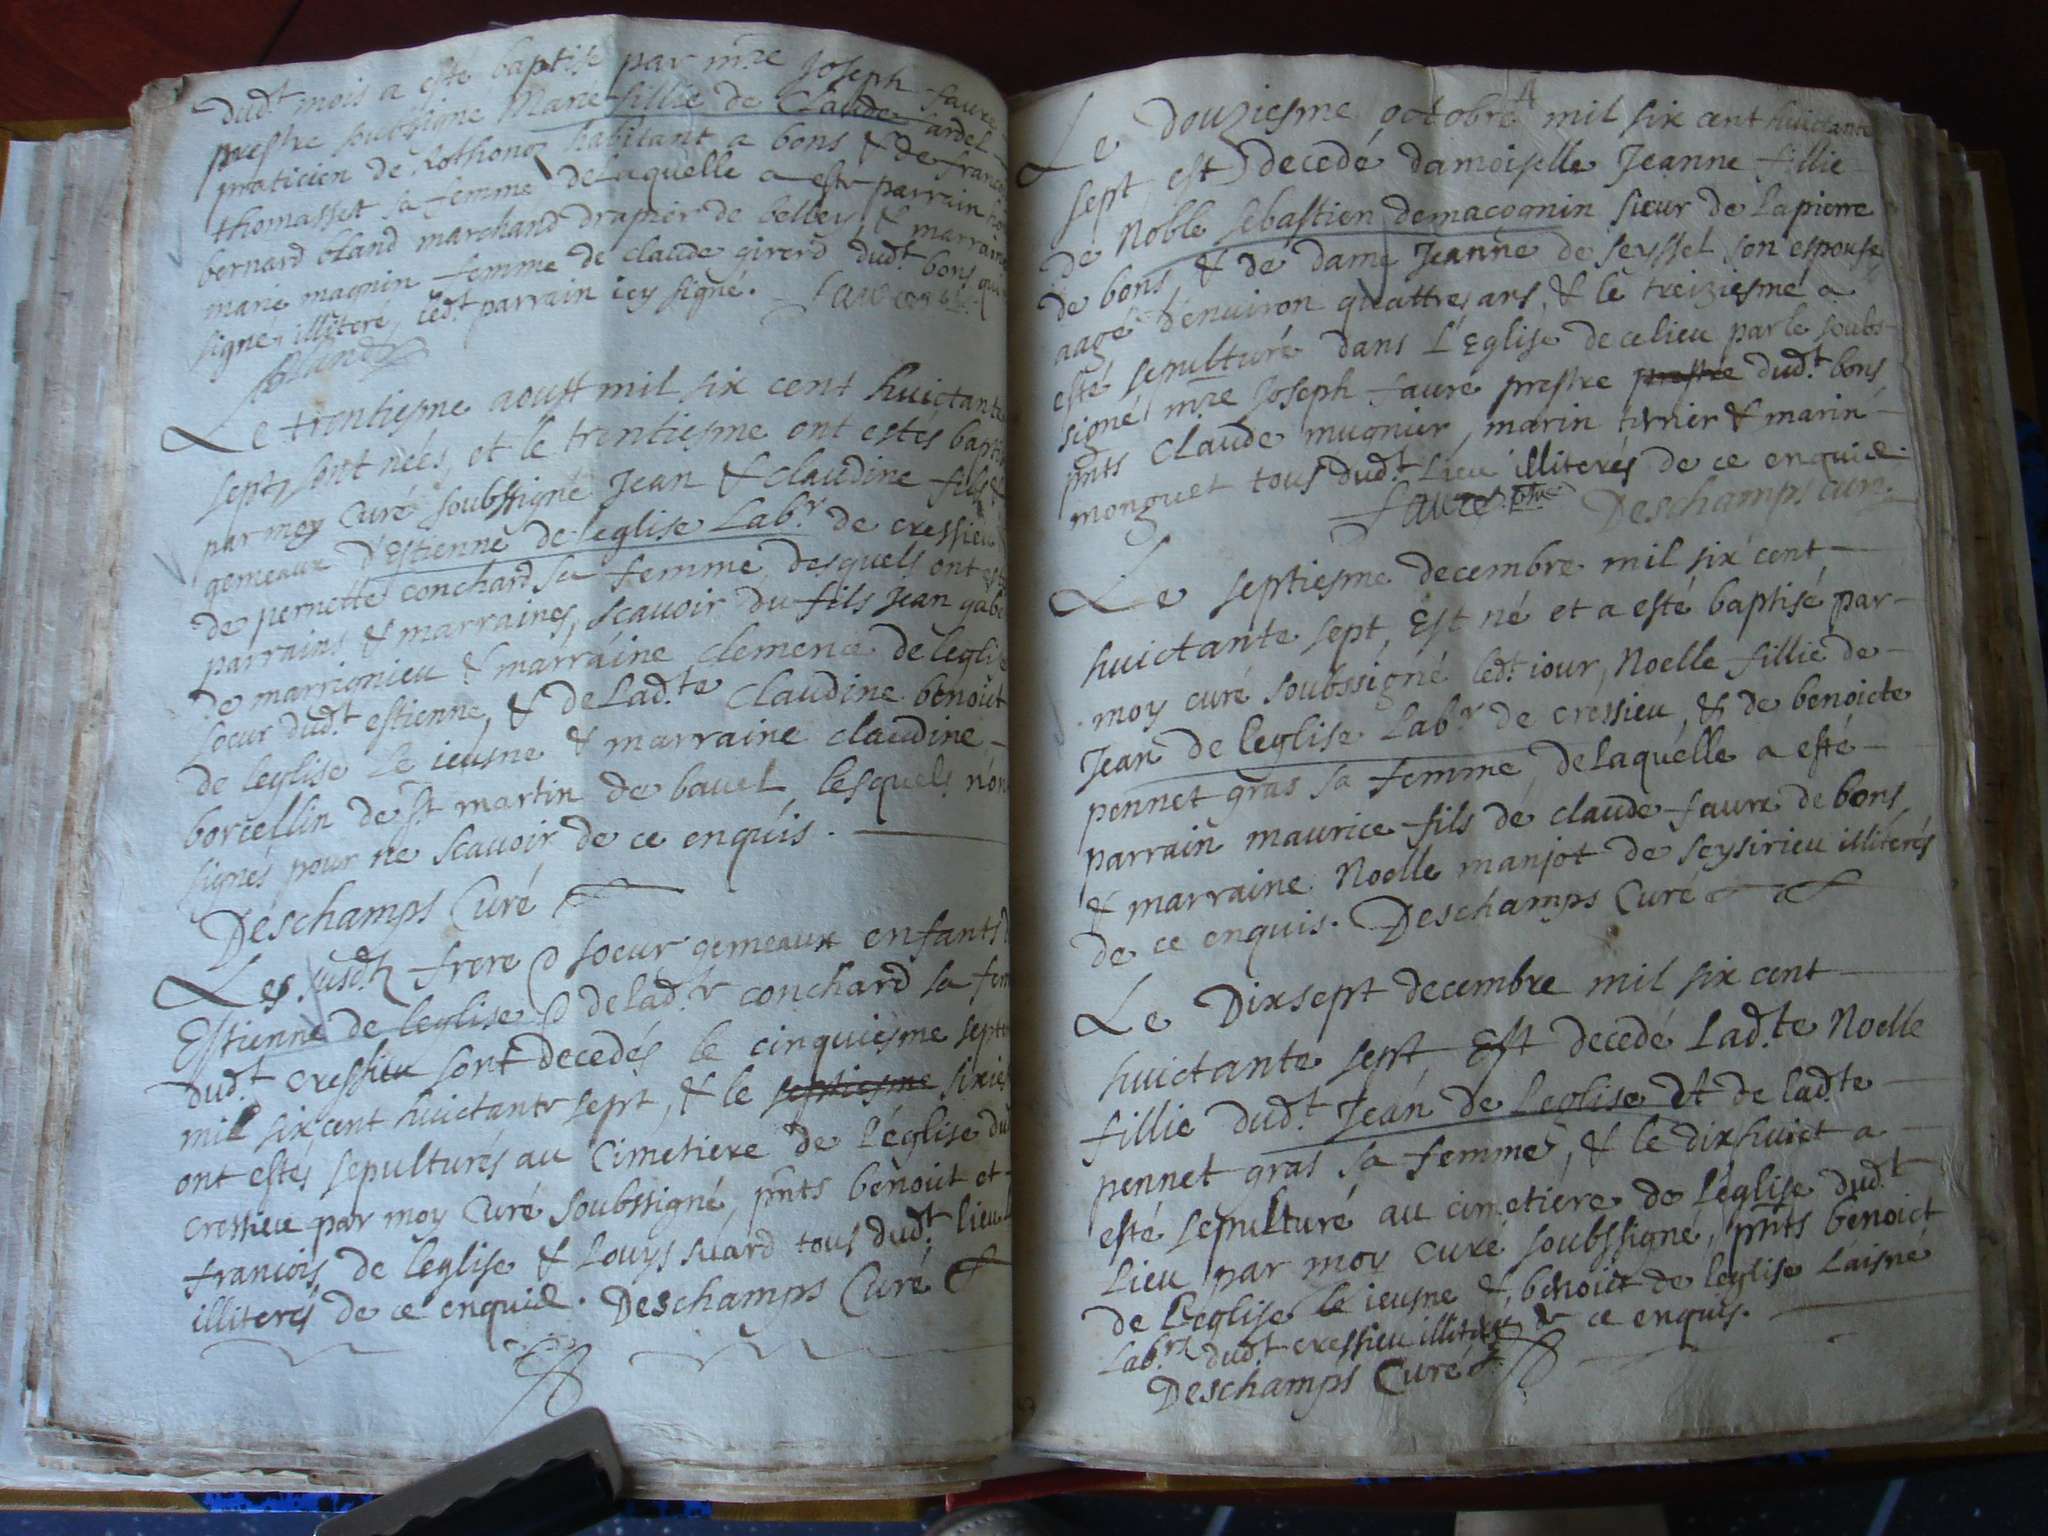 dud.t mois a esté baptisé par m.re Joseph faure
prestre soubsigné Marie fillie de Claude sardel
praticien de Lothonoz habitant a bons & de francoi
thomasset sa femme de laquelle a este parrain ho
bernard bland marchand drapier de belley, & marraine
marie magnin femme de claude girerd dud.t bons qui
signé, illiteré, led.t parrain icy signé. faure
Bland
Le trentiesme aoust mil six cent huictante
sept, sont neés, et le trentiesme ont estes bapti
par moy Curé soubssigné Jean & claudine fils &
gemeaux d'Estienne de leglise Lab.r de cressieu
de pernette conchard sa femme, desquels ont esté
parrains & marraines, scavoir du fils Jean gabe
de marrignieu & marraine clemence de legli
soeur dud.t estienne, & de Lad.te Claudine benoit
de leglise le ieusne & marraine claudine
borcellin de S.t martin de bavel lesquels n'on
signés pour ne scavoir de ce enquis.
Deschamps Curé
Les susd.ts frere & soeur gemeaux enfants d
Estienne de leglise & de lad.te conchard sa fem
dud.t cressieu sont decedés le cinquiesme sept
mil six cent huictante sept, & le septiesme sixies
ont estés sepulturés au Cimetiere de L'église dud
cressieu par moy Curé soubssigné, pnts benoit et
francois de leglise & Louys suard tous dud.t lieu
illiterés de ce enquis. Deschamps Curé
4
Le douziesme octobre mil six cent huictante
sept, est decedé damoiselle Jeanne fillie
de Noble sebastien demacognin sieur de Lapierre
de bons, & de dame Jeanne de seyssel son espouse
aagé d'environ quattres ans, & le treiziesme a
esté sepulturé dans L'Eglise de ce lieu par le soubs-
signé m.re Joseph faure prestre prestre dud.t bons
pnts Claude mugnier, marin tirnier & marin
monguet tous dud.t Lieu illiterés de ce enquis.
faure ptre Deschamps cure.
Le septiesme decembre mil six cent
huictante sept, Est né et a esté baptisé par
moy curé soubssigné led.t iour, Noelle fillie de
Jean de leglise Lab.r de cressieu, & de benoicte
pennet gras sa femme, de laquelle a esté
parrain maurice fils de claude faure de bons,
& marraine Noelle manjot de seysirieu illiterés
de ce enquis. Deschamps Curé
Le Dixsept decembre mil six cent
huictante sept, Est decedé Lad.te Noelle
fillie dud.t Jean de Leglise & de lad.te
pennet gras sa femme, & le dixhuict a
esté sepulturé au cimetiere de Léglise dud.t
Lieu par moy curé soubssigné, pnts benoict
de Leglise le ieusne &, benoict de leglise L'aisné
Lab.rs dud.t cressieu illiterés de ce enquis.
Deschamps Curé